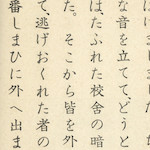 はげしました
な音を立ててどうと
はたふれた校舎の暗
た。そこから皆を外
て、逃げおくれた者の
番しまひに外へ出ま